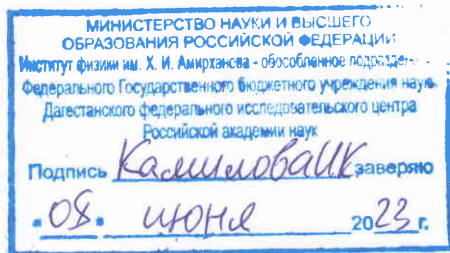 МИНИСТЕРСТВО НАУКИ И ВЫСШЕГО
ОБРАЗОВАНИЯ РОССИЙСКОЙ ФЕДЕРАЦИИ
Институт физики им. Х. И. Амирханова - обособленное
Федерального Государственного бюджетного учреждения науки
Дагестанского федерального исследовательского центра
Российской академии наук
Подпись Камилова ИК заверяю
"08" июня 2023 г.